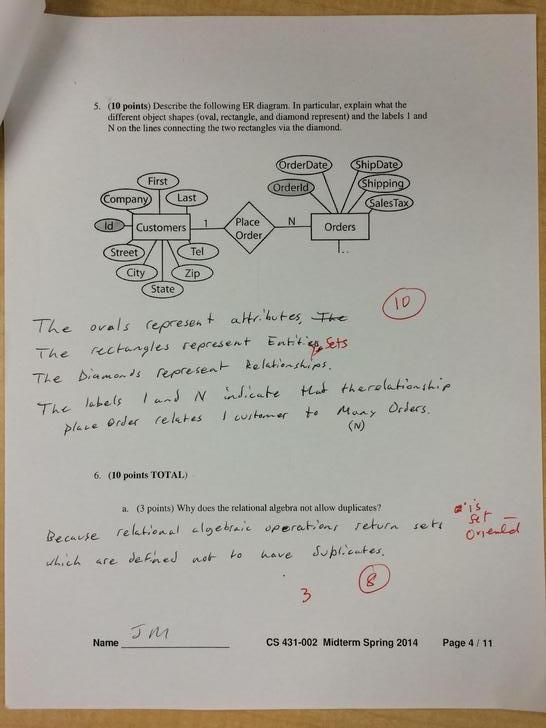 5. (10 points) Describe the following ER diagram. In particular, explain what the
different object shapes (oval, rectangle, and diamond represent) and the labels 1 and
N on the lines connecting the two rectangles via the diamond.
OrderDate ShipDate
First OrderId Shipping
Company Last SalesTax
Id Customers 1 Place Order N Orders
Street Tel
City Zip
State
10
The ovals represent attributes. The
The rectangles represent Entities Sets
The Diamonds represent Relationships.
The labels 1 and N indicate that the relationship
place order relates 1 customer to Many Orders.
(N)
6. (10 points TOTAL)
a. (3 points) Why does the relational algebra not allow duplicates?
Because relational algebraic operations return sets
which are defined not to have duplicates.
is
set
Oriented
8
3
Name JM CS 431-002 Midterm Spring 2014 Page 4 / 11